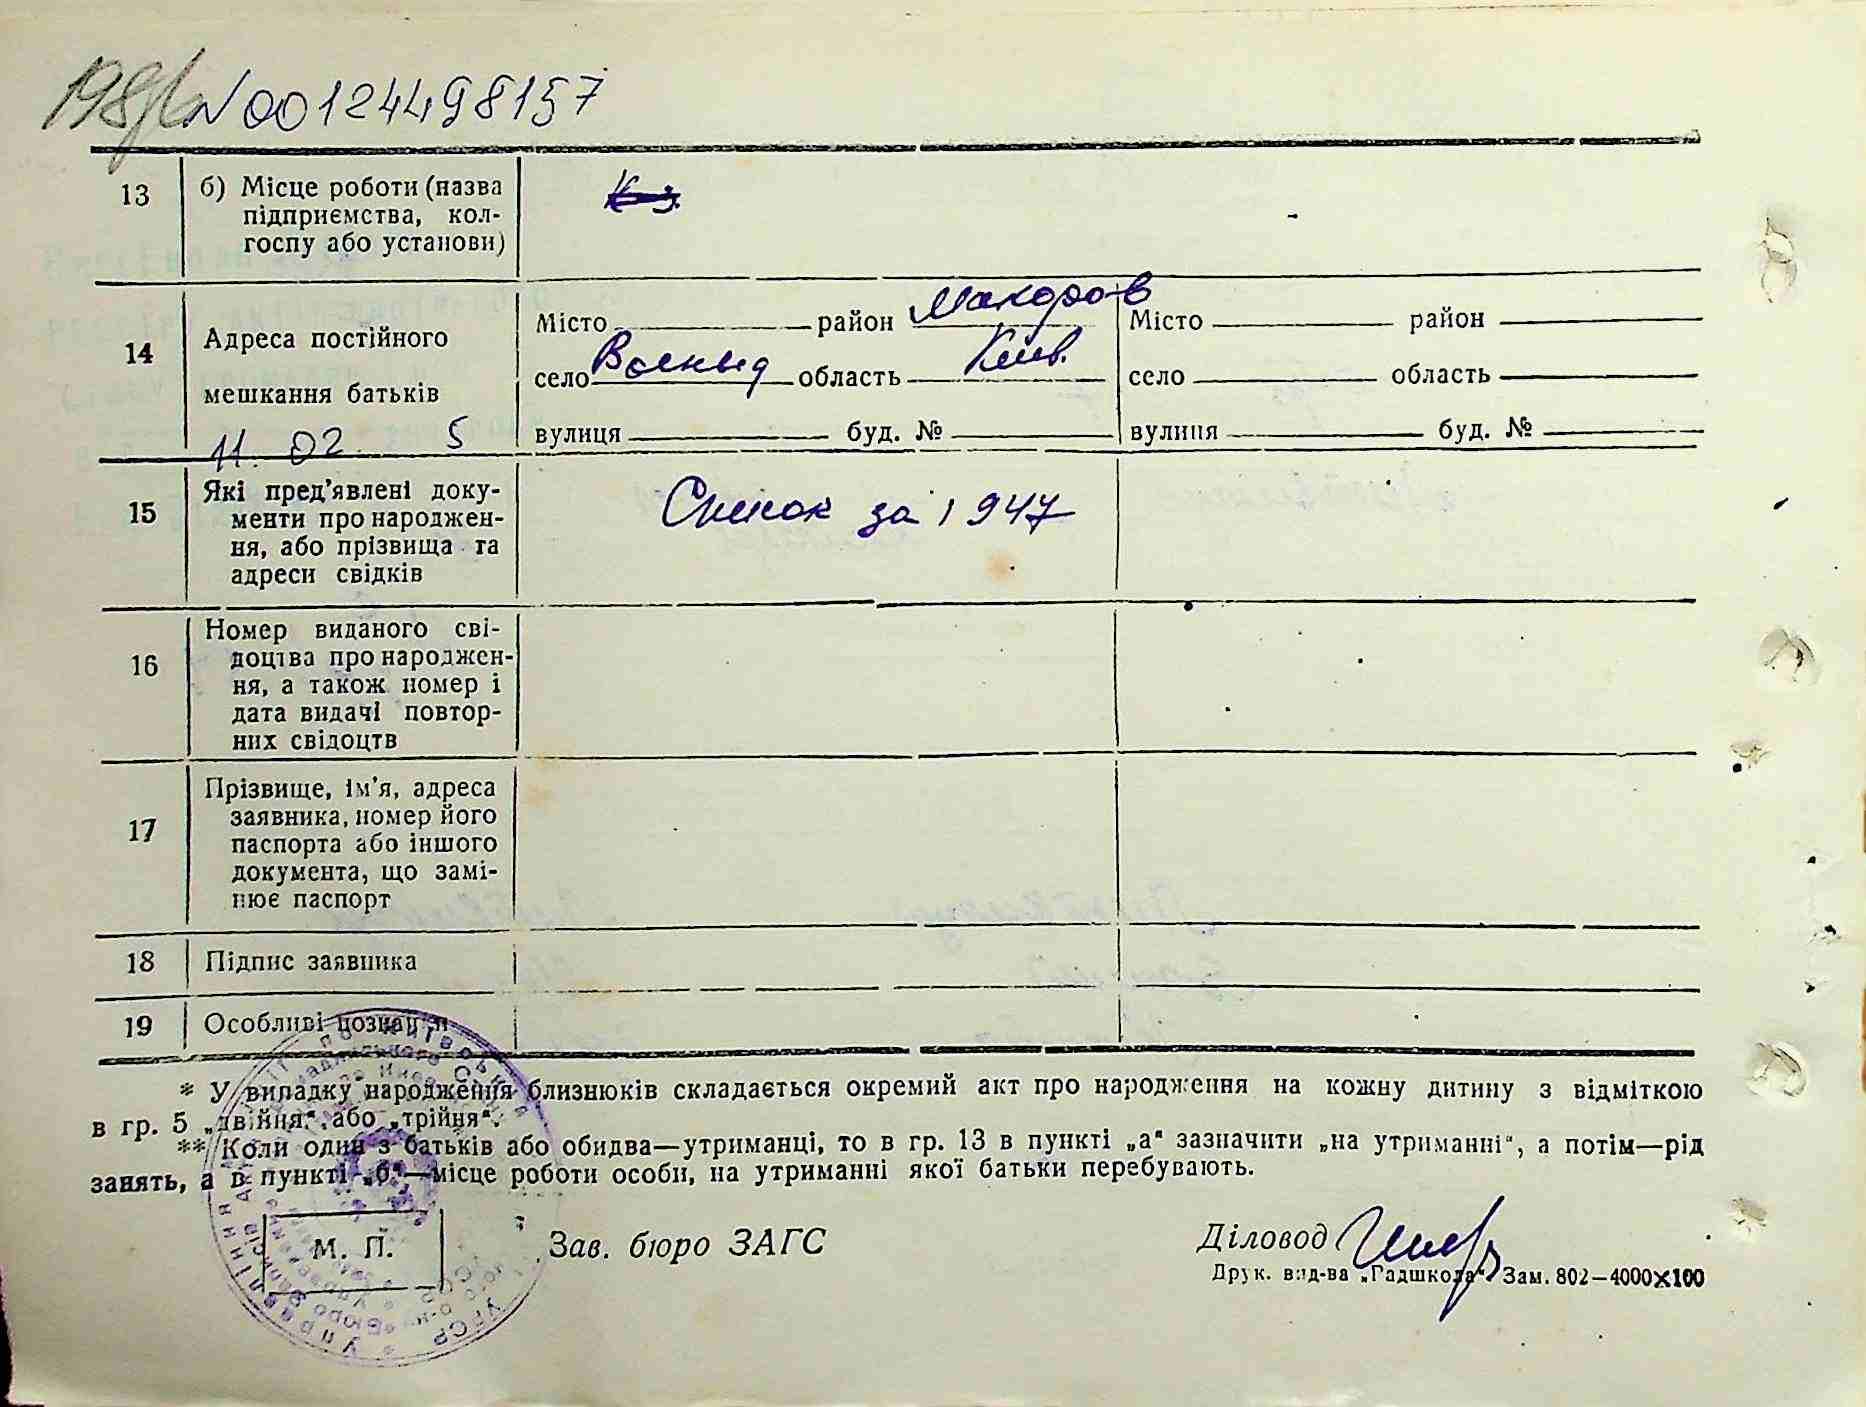 198 №00124498157
13 б) Місце роботи (назва
підприємства, кол-
госпу або установи)
14 Адреса постійного
мешкання батьків
11. 02. 5
Місто район Макоров
село область Київ.
вулиця буд. №
Місто район
село область
вулиця буд. №
15 Які пред'явлені доку-
менти про народжен-
ня, або прізвища та
адреси свідків
Список за 1947
16 Номер виданого сві-
доцтва про народжен-
ня, а також номер і
дата видачі повтор-
них свідоцтв
17 Прізвище, ім'я, адреса
заявника, номер його
паспорта або іншого
документа, що замі-
нює паспорт
18 Підпис заявника
19 Особливі позначки
* У випадку народження близнюків складається окремий акт про народження на кожну дитину з відміткою
в гр. 5 „двійня“ або „трійня“.
** Коли один з батьків або обидва—утриманці, то в гр. 13 в пункті „а“ зазначити „на утриманні“, а потім—рід
занять, а в пункті „б“—місце роботи особи, на утриманні якої батьки перебувають.
М. П.
Зав. бюро ЗАГС
Діловод
Друк. вид-ва „Радшкола“ Зам. 802—4000×100